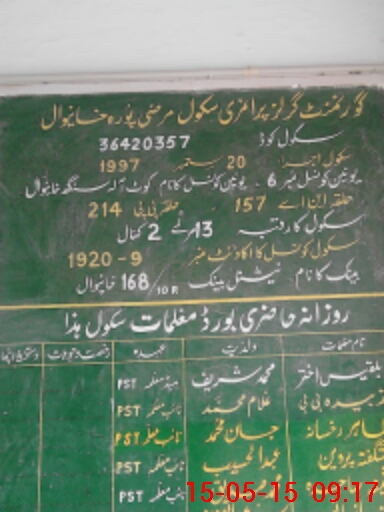 گورنمنٹ گرلز پرائمری سکول مرضی پورہ خانیوال
سکول کوڈ 36420357
سکول اجرا 20 ستمبر 1997
یونین کونسل نمبر 6 ۔ یونین کونسل کا نام کوٹ سنگھ خانیوال
حلقہ این اے 157 حلقہ پی پی 214
سکول کا رقبہ 13 مرلے 2 کنال
سکول کونسل کا اکاؤنٹ نمبر 9 - 1920
بینک کا نام نیشنل بینک 168/10R خانیوال
روزانہ حاضری بورڈ معلمات سکول ہذا
نام معلمات ولدیت عہدہ
بلقیس اختر محمد شریف ہیڈ معلمہ PST
بی بی غلام محمد نائب معلمہ PST
طاہر رخسانہ جان محمد نائب معلمہ PST
شگفتہ پروین نائب معلمہ PST
نائب معلمہ PST
15-05-15 09:17